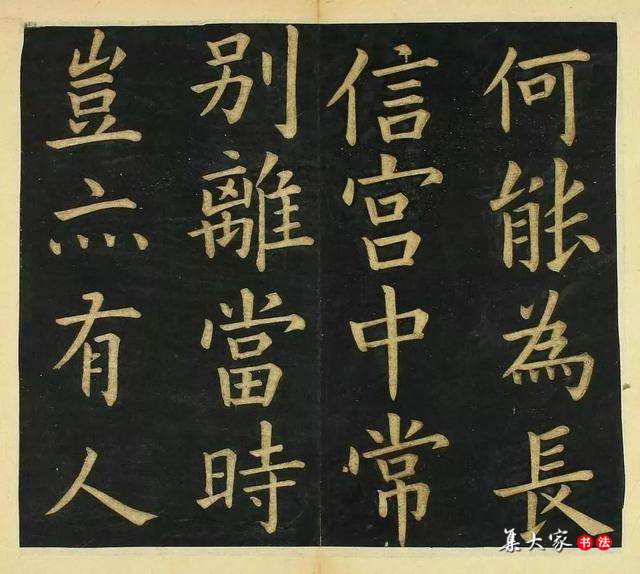 何能為長
信宮中常
别離當時
豈亦有人
集大家书法